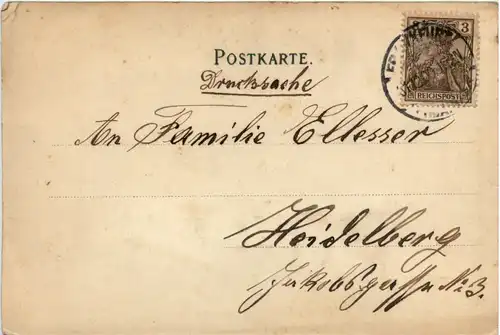 3
FRANKFURT
REICHSPOST
POSTKARTE.
Drucksache
An Familie Ellesser
Heidelberg
Jakobsgasse No. 3.